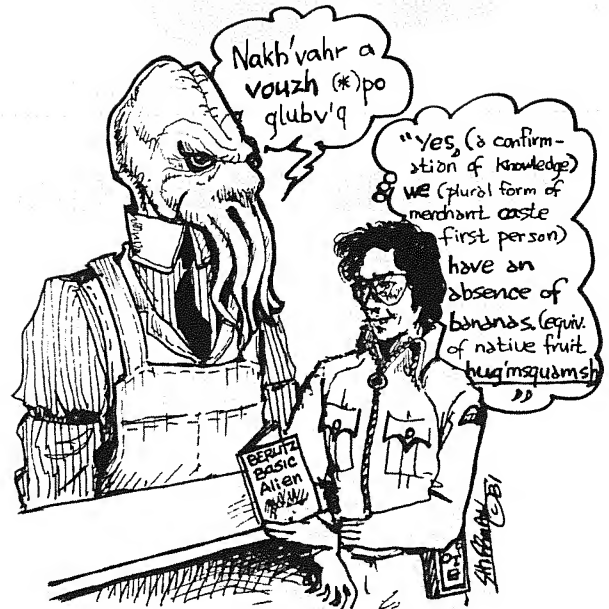 Nakh'vahr a
vouzh (*)po
glubv'q
"Yes, (a confirm-
ation of knowledge)
we (plural form of
merchant caste
first person)
have an
absence of
bananas. (equiv.
of native fruit
hug'msquamsh
"
BERLITZ
Basic
Alien
© 81